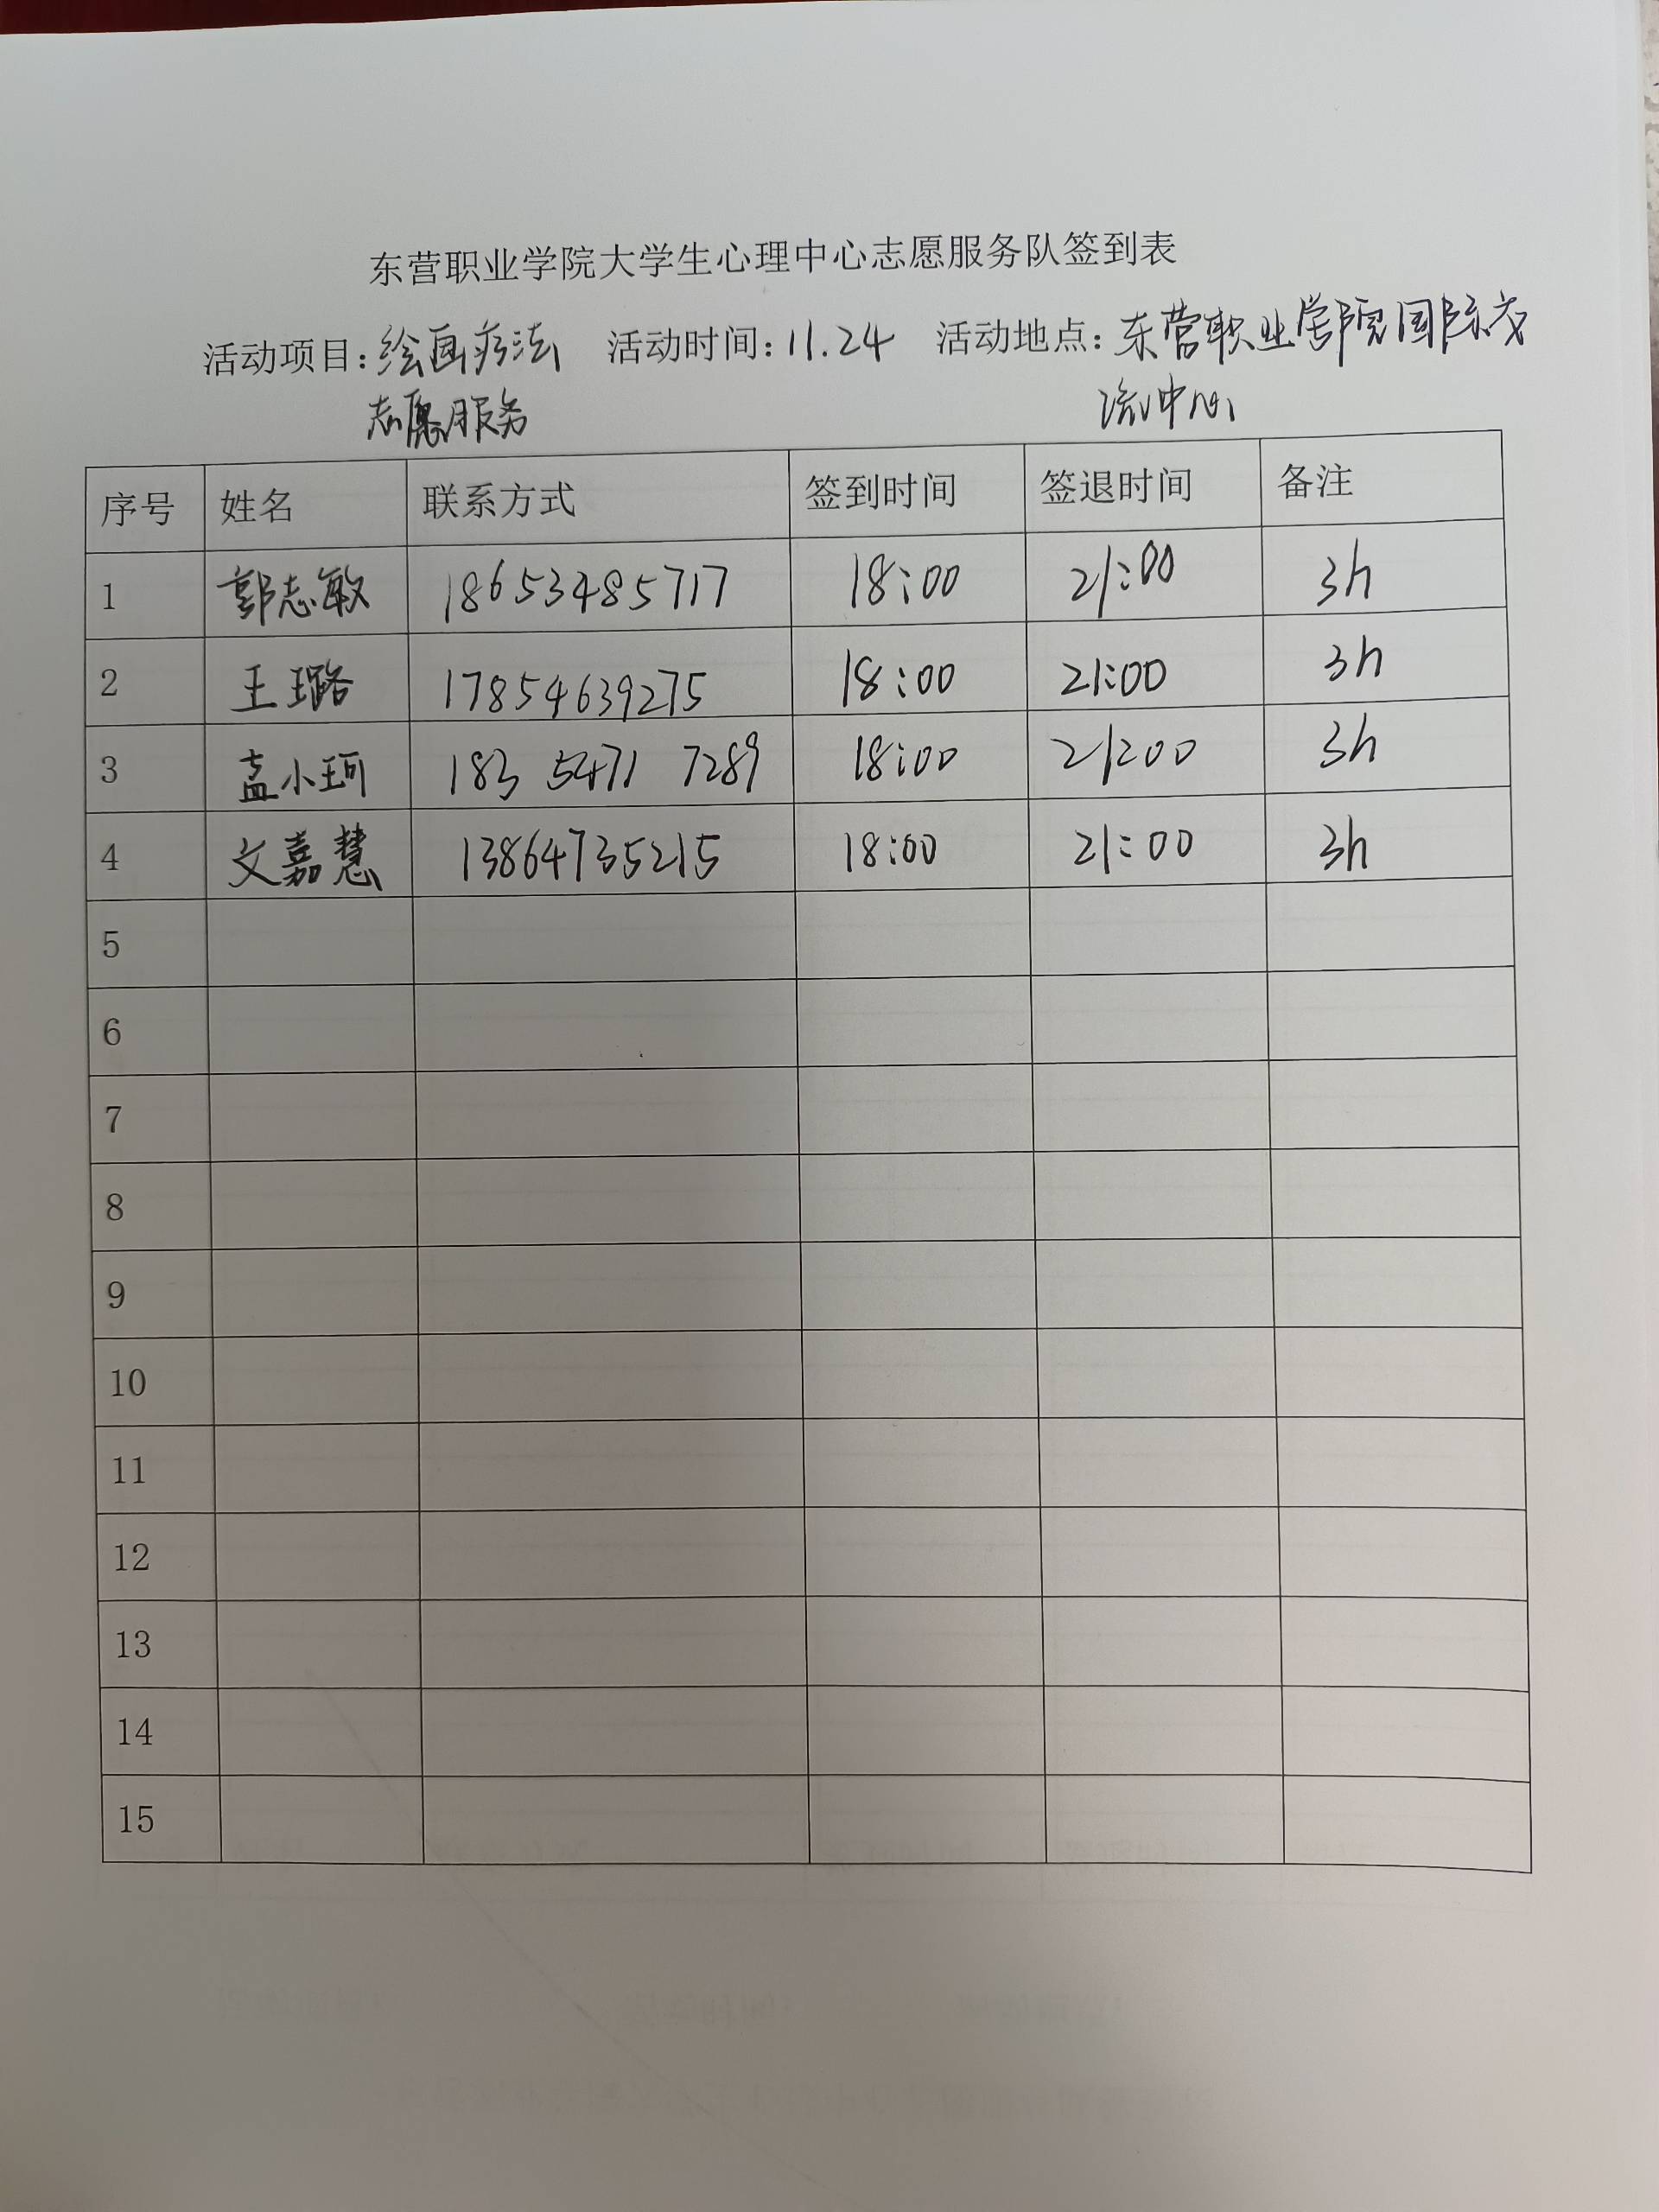 东营职业学院大学生心理中心志愿服务队签到表
活动项目:绘画疗法 活动时间:11.24 活动地点:东营职业学院国际交
志愿服务 流中心
序号 姓名 联系方式 签到时间 签退时间 备注
1 郭志敏 18653485717 18:00 21:00 3h
2 王璐 17854639275 18:00 21:00 3h
3 孟小珂 183 5471 7289 18:00 21:00 3h
4 文嘉慧 13864735215 18:00 21:00 3h
5
6
7
8
9
10
11
12
13
14
15